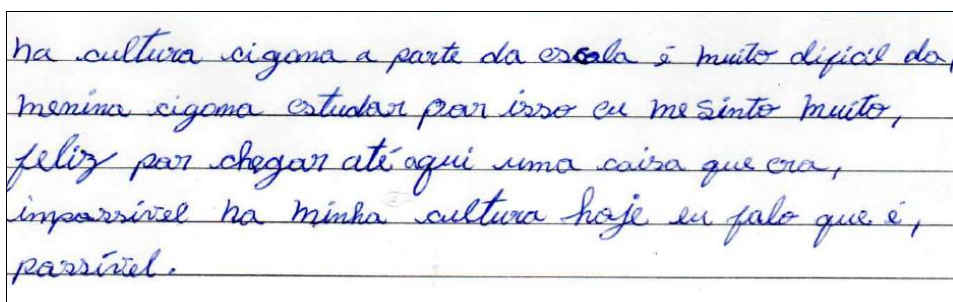 na cultura cigana a parte da escola é muito dificil da,
menina cigana estudar por isso eu me sinto muito,
feliz por chegar até aqui uma coisa que era,
impossível na minha cultura hoje eu falo que é,
possível.